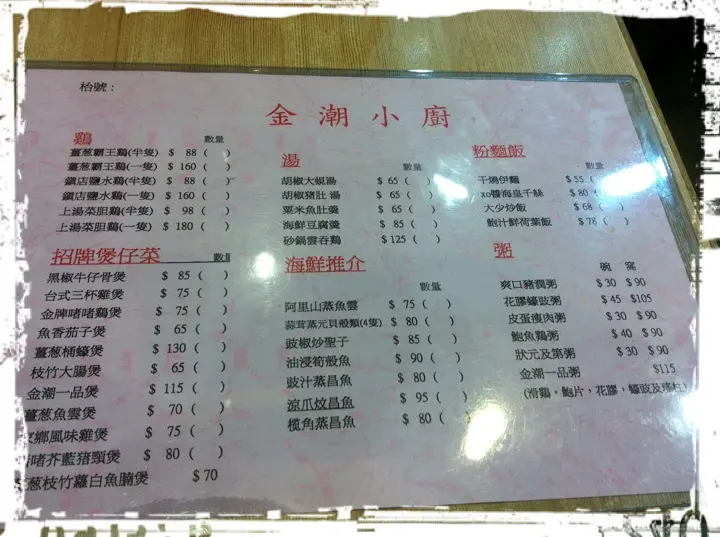 枱號：
金潮小廚
鷄 數量
薑葱霸王鷄(半隻) $ 88 ( )
薑葱霸王鷄(一隻) $ 160 ( )
鎮店鹽水鷄(半隻) $ 88 ( )
鎮店鹽水鷄(一隻) $ 160 ( )
上湯菜胆鷄(半隻) $ 98 ( )
上湯菜胆鷄(一隻) $ 180 ( )
招牌煲仔菜 數量
黑椒牛仔骨煲 $ 85 ( )
台式三杯雞煲 $ 75 ( )
金牌啫啫鷄煲 $ 75 ( )
魚香茄子煲 $ 65 ( )
薑葱桶蠔煲 $ 130 ( )
枝竹大腸煲 $ 65 ( )
金潮一品煲 $ 115 ( )
薑葱魚雲煲 $ 70 ( )
家鄉風味雞煲 $ 75 ( )
啫芥藍猪頸煲 $ 80 ( )
葱枝竹蘿白魚腩煲 $ 70
湯 數量
胡椒大蜆湯 $ 65 ( )
胡椒猪肚湯 $ 65 ( )
粟米魚肚羹 $ 65 ( )
海鮮豆腐羹 $ 85 ( )
砂鍋雲吞鷄 $ 125 ( )
海鮮推介
數量
阿里山蒸魚雲 $ 75 ( )
蒜茸蒸元貝殼類(4隻) $ 80 ( )
豉椒炒聖子 $ 85 ( )
油浸筍殼魚 $ 90 ( )
豉汁蒸昌魚 $ 80 ( )
涼爪炆昌魚 $ 95 ( )
欖角蒸昌魚 $ 80 ( )
粉麵飯
數量
干燒伊麵 $ 55 ( )
xo醬海皇千絲 $ 80 ( )
大少炒飯 $ 68 ( )
鮑汁鮮荷葉飯 $ 78 ( )
粥
碗 窩
爽口豬潤粥 $ 30 $ 90
花膠蠔豉粥 $ 45 $105
皮蛋瘦肉粥 $ 30 $ 90
鮑魚鷄粥 $ 40 $ 90
狀元及第粥 $ 30 $ 90
金潮一品粥 $115
(滑鷄，鮑片，花膠，蠔豉及瑤柱)